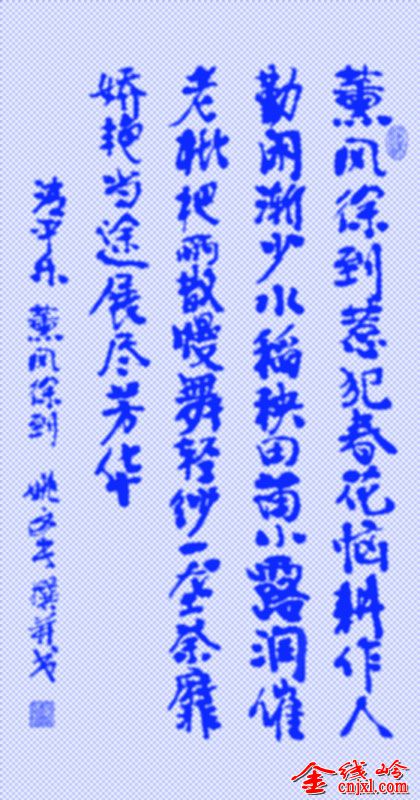 薰风徐到惹犯春花恼耕作人
勤闲渐少水稻秧田苗小露润催
老枇杷雨散慢舞轻纱一垄荼靡
娇艳当途展尽芳华
清平乐 薰风徐到 姚文撰并书
金线岭
cnjxl.com